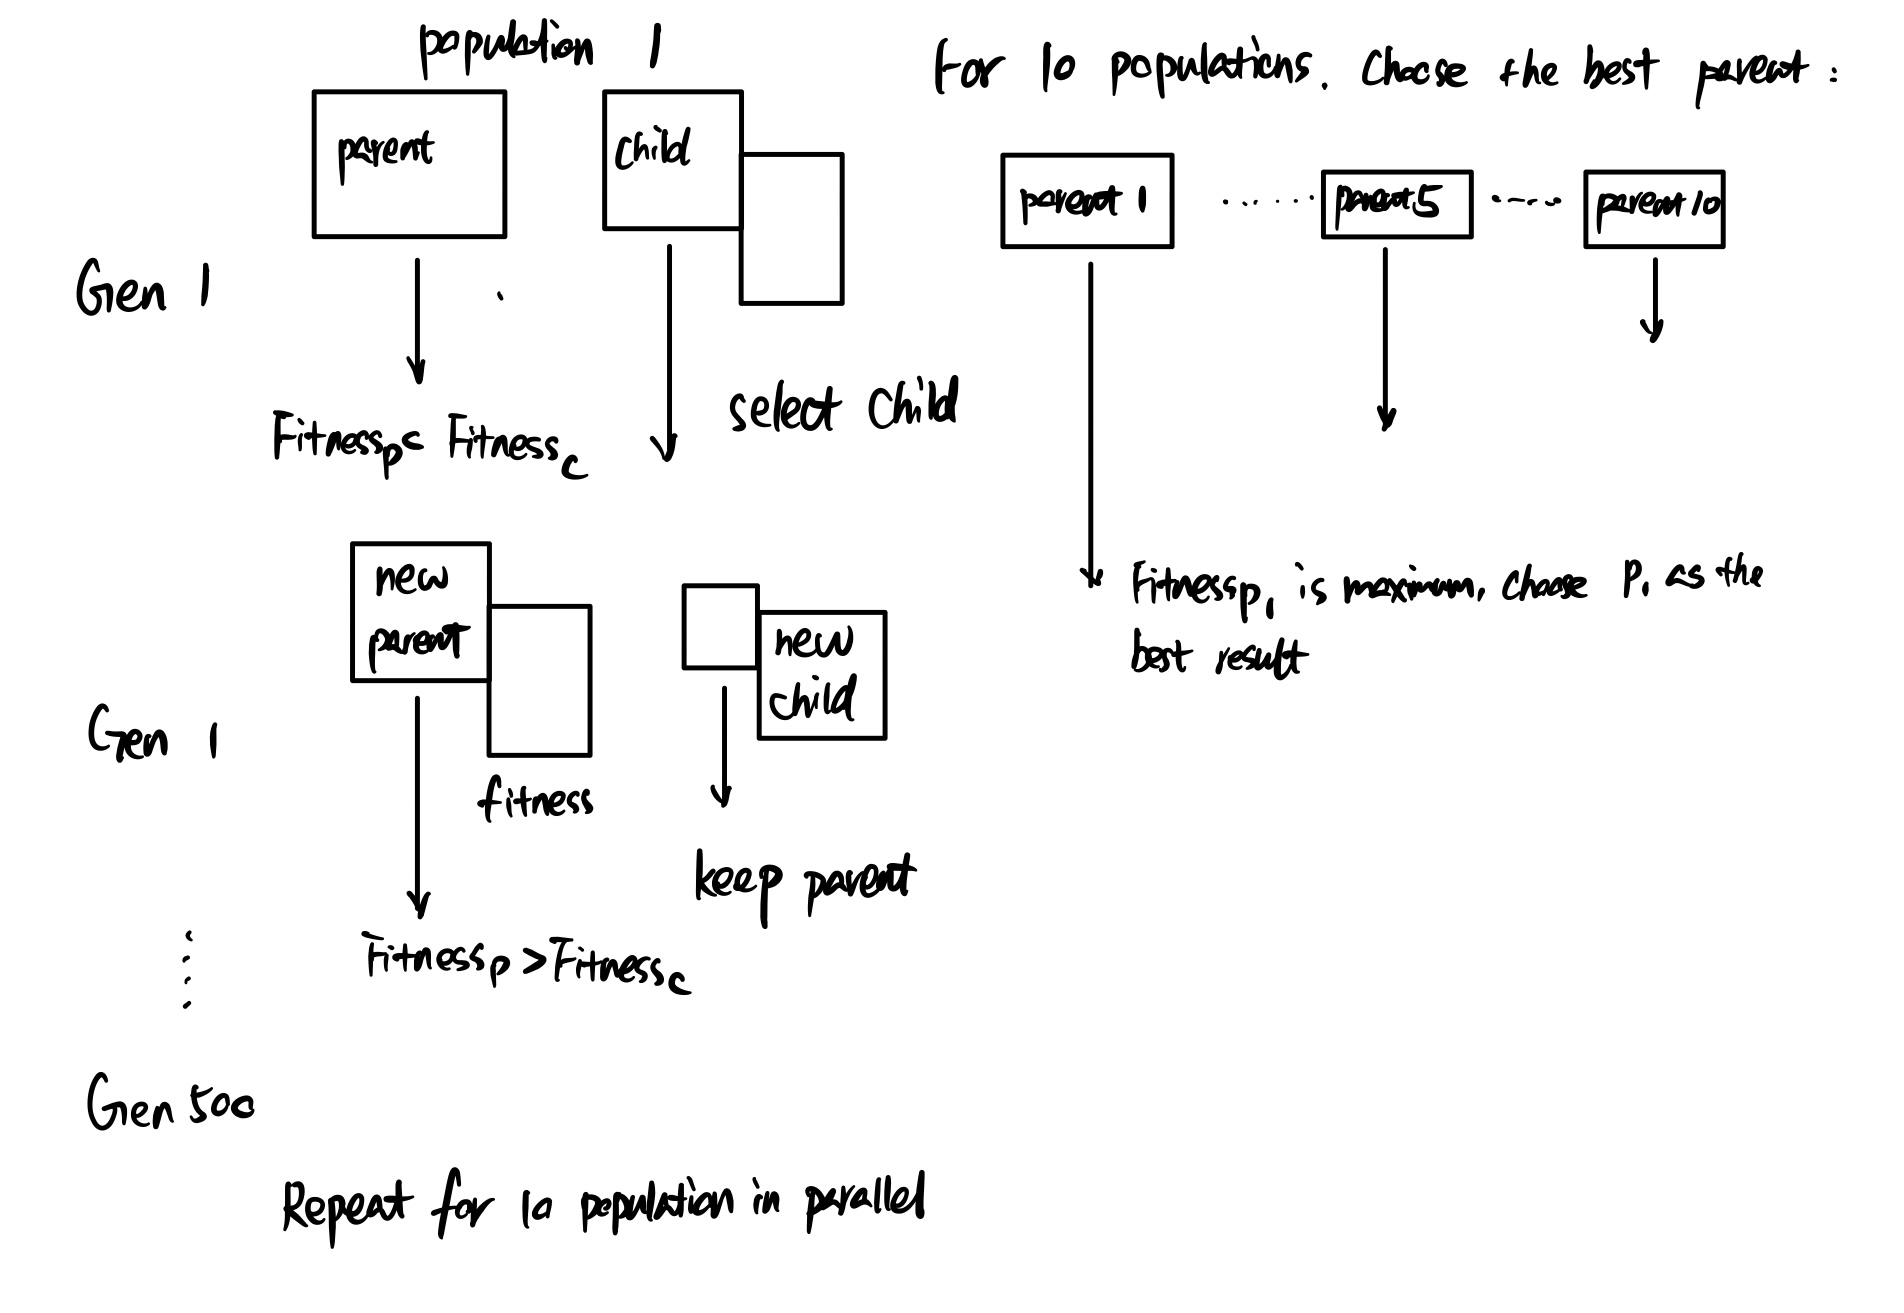 population 1
parent
child
Gen 1
Fitnessp < Fitnessc
select child
new
parent
new
child
Gen 1
fitness
keep parent
Fitnessp > Fitnessc
Gen 500
Repeat for 10 population in parallel
For 10 populations. Choose the best parent:
parent 1 ..... parent 5 ---- parent 10
Fitnessp1 is maximum, choose P1 as the
best result